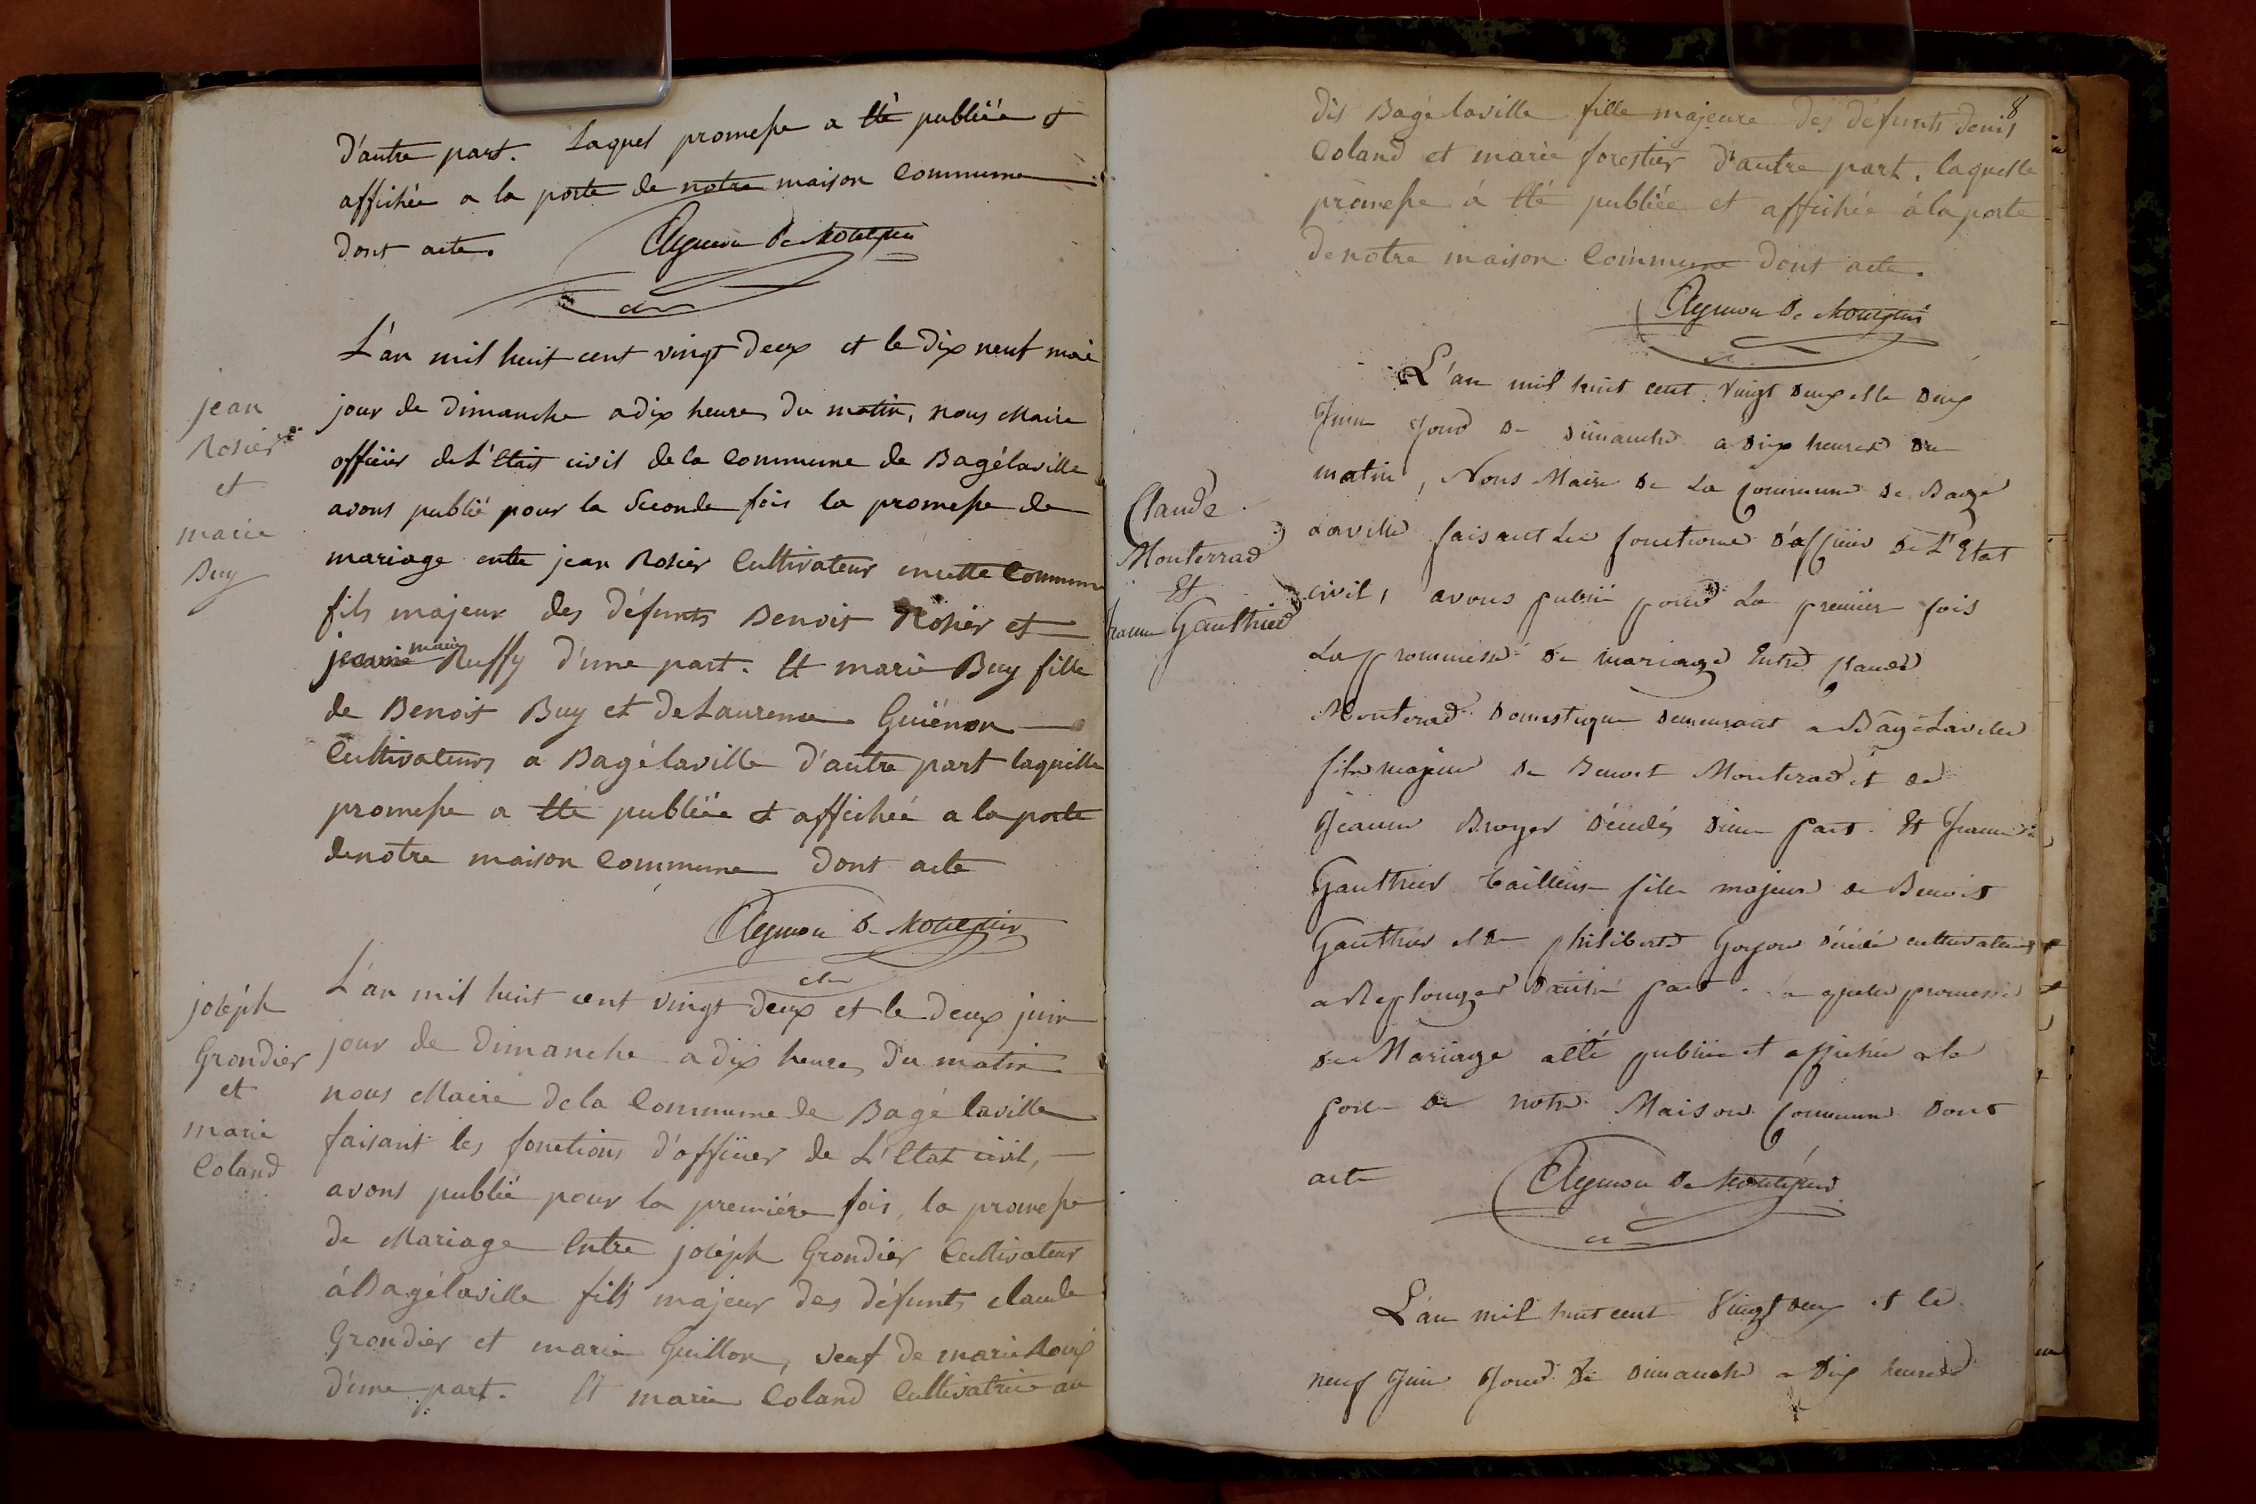 d'autre part. Laquel promesse a été publiéé et
affichéé a la porte de notre maison Commune
dont acte.
Aymon de Montepin
L'an mil huit cent vingt deux et le dix neuf mai
jour de dimanche a dix heures du matin, nous Maire
officier de L'Etat civil de la Commune de Bagélaville
avons publié pour la Seconde fois la promesse de
mariage entre jean Rosier Cultivateur en cette Commune
fils majeur des défunts Benoit Rosier et
jeanne marie Ruffy d'une part. Et marie Buy fille
de Benoit Buy et de Laurence Guiénon
Cultivateurs a Bagélaville d'autre part laquelle
promesse a été publiéé et affichéé a la porte
de notre maison Commune dont acte
Aymon de Montepin
jean
Rosier
et
marie
Buy
L'an mil huit cent vingt deux et le deux juin
jour de dimanche a dix heures du matin
nous Maire de la Commune de Bagé laville
faisant les fonctions d'officier de L'Etat civil,
avons publié pour la premiére fois, la promesse
de Mariage Entre joséph Grondier Cultivateur
á Bagélaville fils majeur des défunts claude
Grondier et marie Guillon, veuf de marie Roux
d'une part. Et marie Coland Cultivatrice au
joséph
Grondier
et
marie
Coland
8
dis Bagélaville fille majeure des défunts denis
Coland et marie forestier d'autre part, laquelle
promesse á été publiéé et affichéé á la porte
de notre maison Commune dont acte.
Aymon de Montepin
L'an mil huit cent vingt deux et le deux
Juin Jour de dimanche a dix heures du
matin, Nous Maire de La Commune de Bagé
Laville faisant Les fonctions d'officier de L'Etat
civil, avons publié pour La premier fois
La promesse de mariage Entre Claude
Monterrad domestique demeurant a BagéLaville
fils majeur de Benoit Monterrad et de
Jeanne Broyer décédés d'une part. Et Jeanne
Gauthier tailleuse fille majeur de Benoit
Gauthier et de philiberte Goyon décédé cultivateurs
a Replonges d'autre part. Laquelle promesse
de Mariage a été publiée et affichée a la
porte de notre Maison Commune dont
acte
Aymon de Montepin
Claude
Monterrad
Et
Jeanne Gauthier
L'an mil huit cent Vingt deux et le
neuf Juin Jour de dimanche a dix heures